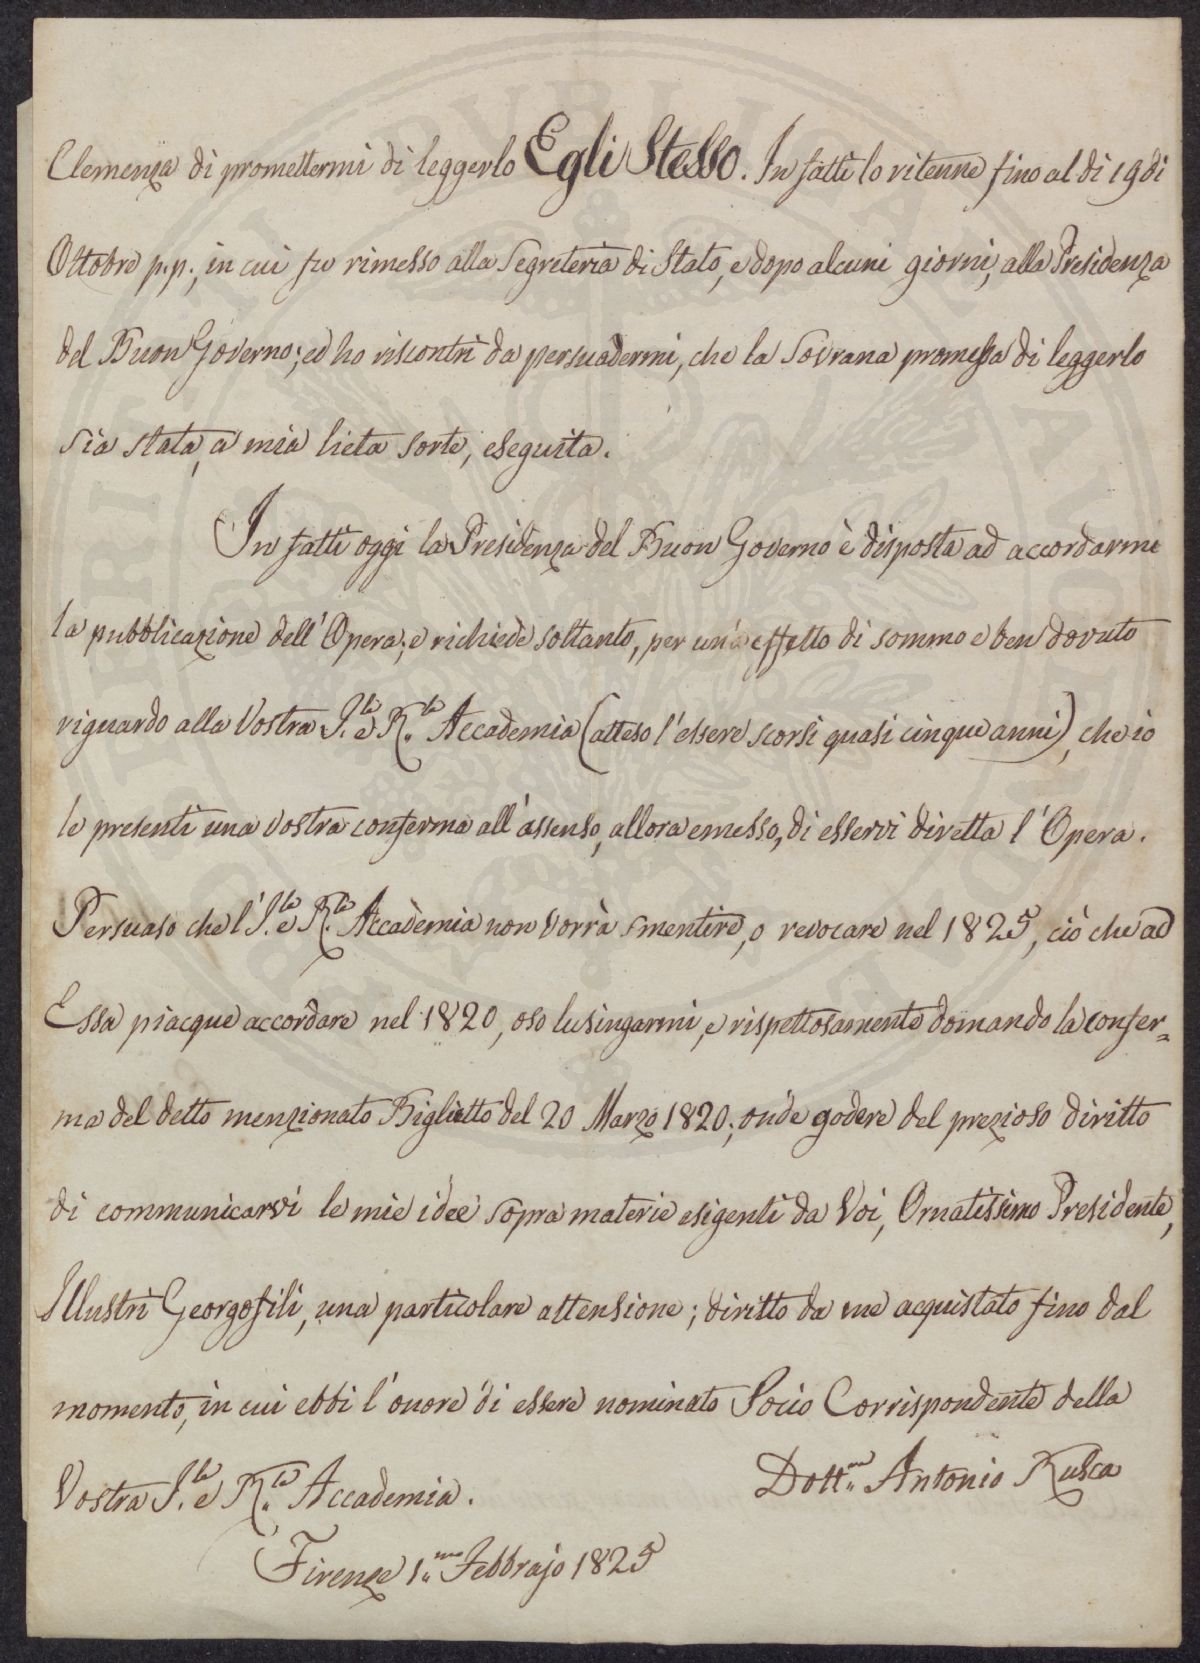 Clemenza di promettermi di leggerlo Egli Stesso. In fatti lo ritenne fino al di 19 di
Ottobre p.p., in cui fu rimesso alla Segreteria di Stato, e dopo alcuni giorni, alla Presidenza
del Buon Governo; ed ho riscontri da persuadermi, che la Sovrana promessa di leggerlo
sia stata, a mia lieta sorte, eseguita.
In fatti oggi la Presidenza del Buon Governo è disposta ad accordarmi
la pubblicazione dell'Opera; e richiede soltanto, per un effetto di sommo e ben dovuto
riguardo alla Vostra I.le e R.le Accademia (atteso l'essere scorsi quasi cinque anni), che io
le presenti una vostra conferma all'assenso, allora emesso, di esservi diretta l'Opera.
Persuaso che l'I.le e R.le Accademia non vorrà smentire, o revocare nel 1825, ciò che ad
Essa piacque accordare nel 1820, oso lusingarmi, e rispettosamente domando la confer=
ma del detto menzionato Biglietto del 20 Marzo 1820; onde godere del prezioso diritto
di communicarvi le mie idee sopra materie esigenti da Voi, Ornatissimo Presidente,
Illustri Georgofili, una particolare attensione; diritto da me acquistato fino dal
momento, in cui ebbi l'onore di essere nominato Socio Corrispondente della
Vostra I.le e R.le Accademia.
Dott.re Antonio Rusca
Firenze 1.mo Febbrajo 1825